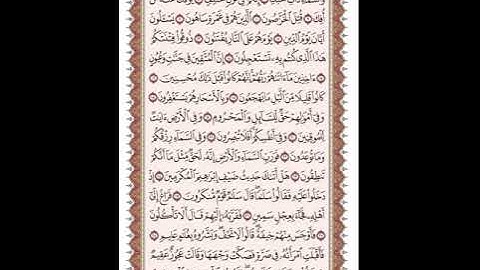 وَٱلسَّمَآءِ ذَاتِ ٱلْحُبُكِ ۝ إِنَّكُمْ لَفِى قَوْلٍ مُّخْتَلِفٍ ۝ يُؤْفَكُ عَنْهُ مَنْ
أُفِكَ ۝ قُتِلَ ٱلْخَرَّٰصُونَ ۝ ٱلَّذِينَ هُمْ فِى غَمْرَةٍ سَاهُونَ ۝ يَسْـَٔلُونَ
أَيَّانَ يَوْمُ ٱلدِّينِ ۝ يَوْمَ هُمْ عَلَى ٱلنَّارِ يُفْتَنُونَ ۝ ذُوقُوا۟ فِتْنَتَكُمْ
هَٰذَا ٱلَّذِى كُنتُم بِهِۦ تَسْتَعْجِلُونَ ۝ إِنَّ ٱلْمُتَّقِينَ فِى جَنَّٰتٍ وَعُيُونٍ
۝ ءَاخِذِينَ مَآ ءَاتَىٰهُمْ رَبُّهُمْ إِنَّهُمْ كَانُوا۟ قَبْلَ ذَٰلِكَ مُحْسِنِينَ ۝
كَانُوا۟ قَلِيلًا مِّنَ ٱلَّيْلِ مَا يَهْجَعُونَ ۝ وَبِٱلْأَسْحَارِ هُمْ يَسْتَغْفِرُونَ ۝
وَفِىٓ أَمْوَٰلِهِمْ حَقٌّ لِّلسَّآئِلِ وَٱلْمَحْرُومِ ۝ وَفِى ٱلْأَرْضِ ءَايَٰتٌ
لِّلْمُوقِنِينَ ۝ وَفِىٓ أَنفُسِكُمْ أَفَلَا تُبْصِرُونَ ۝ وَفِى ٱلسَّمَآءِ رِزْقُكُمْ
وَمَا تُوعَدُونَ ۝ فَوَرَبِّ ٱلسَّمَآءِ وَٱلْأَرْضِ إِنَّهُۥ لَحَقٌّ مِّثْلَ مَآ أَنَّكُمْ
تَنطِقُونَ ۝ هَلْ أَتَىٰكَ حَدِيثُ ضَيْفِ إِبْرَٰهِيمَ ٱلْمُكْرَمِينَ ۝ إِذْ
دَخَلُوا۟ عَلَيْهِ فَقَالُوا۟ سَلَٰمًا قَالَ سَلَٰمٌ قَوْمٌ مُّنكَرُونَ ۝ فَرَاغَ إِلَىٰٓ
أَهْلِهِۦ فَجَآءَ بِعِجْلٍ سَمِينٍ ۝ فَقَرَّبَهُۥٓ إِلَيْهِمْ قَالَ أَلَا تَأْكُلُونَ
۝ فَأَوْجَسَ مِنْهُمْ خِيفَةً قَالُوا۟ لَا تَخَفْ وَبَشَّرُوهُ بِغُلَٰمٍ عَلِيمٍ ۝
فَأَقْبَلَتِ ٱمْرَأَتُهُۥ فِى صَرَّةٍ فَصَكَّتْ وَجْهَهَا وَقَالَتْ عَجُوزٌ عَقِيمٌ